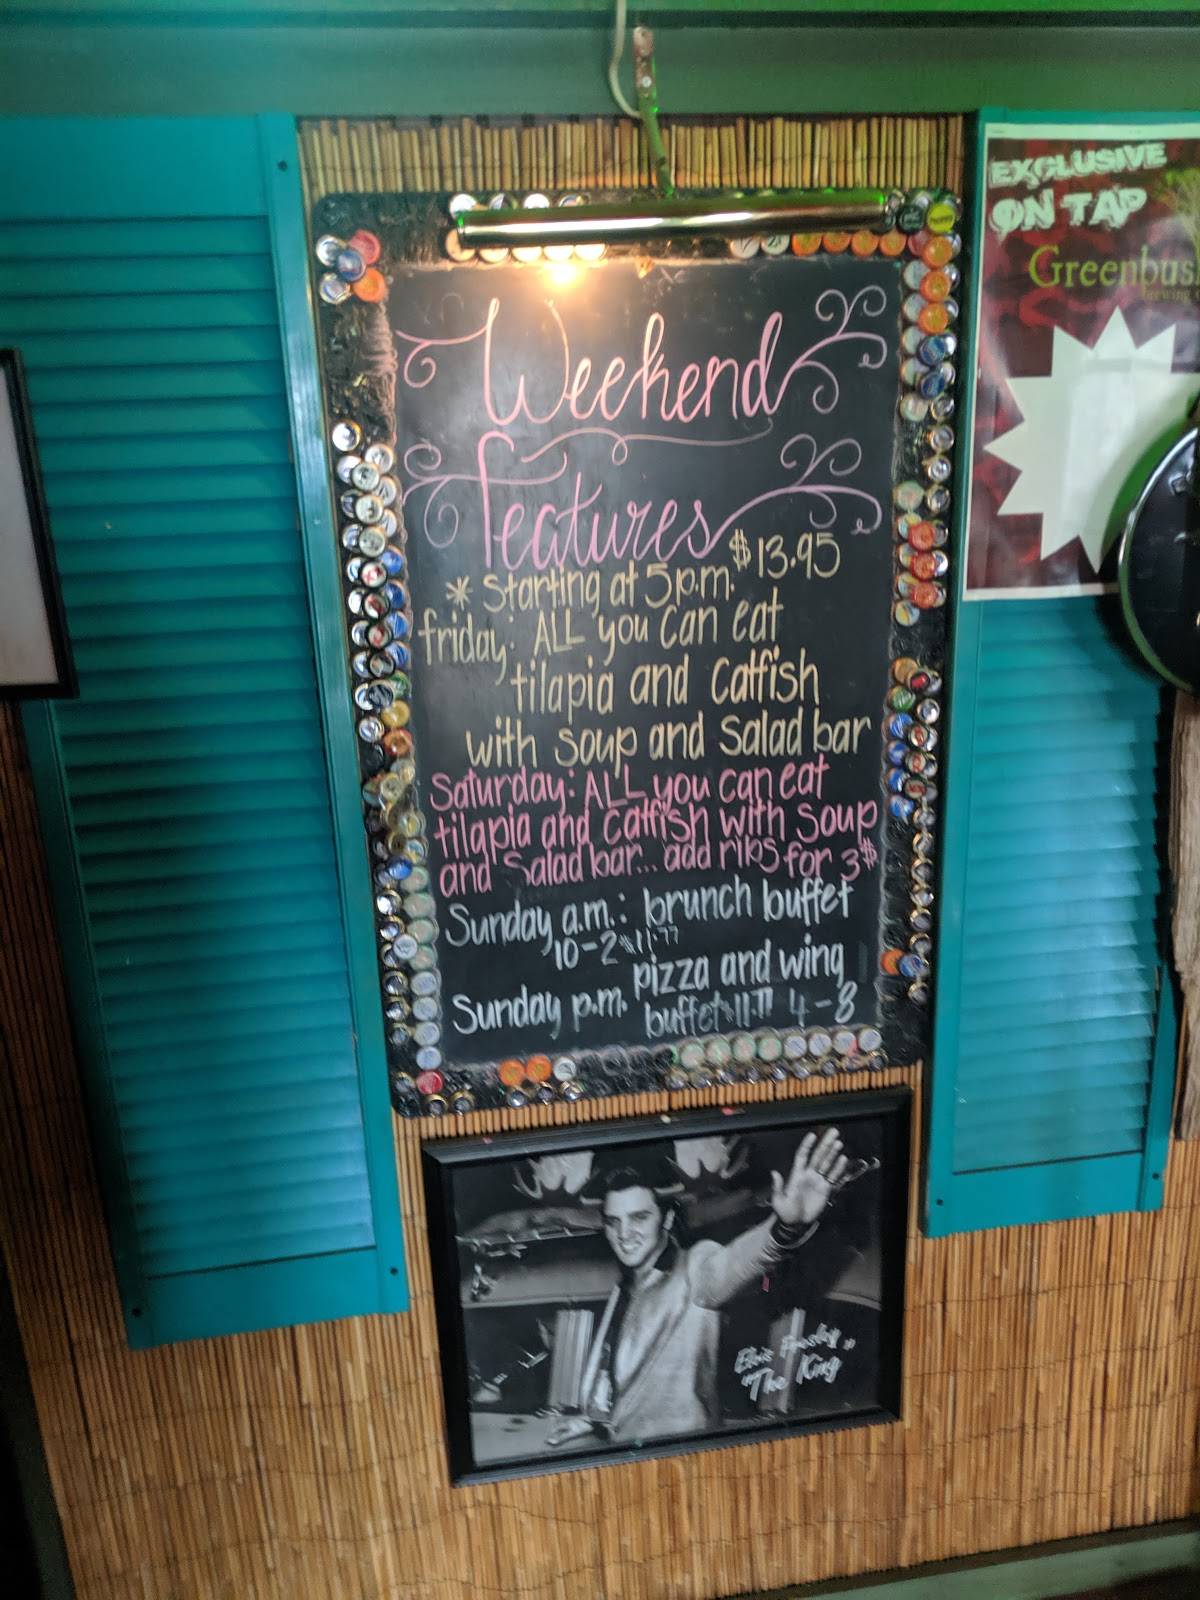 Weekend
Features
$13.95
* Starting at 5p.m.
friday: ALL you can eat
tilapia and catfish
with soup and salad bar
Saturday: ALL you can eat
tilapia and catfish with soup
and Salad bar... add ribs for 3$
Sunday a.m.: brunch buffet
10-2 $11.77
Sunday p.m. pizza and wing
buffet $11.77 4-8
EXCLUSIVE
ON TAP
Greenbus
Brewing
Elvis Presley
"The King"